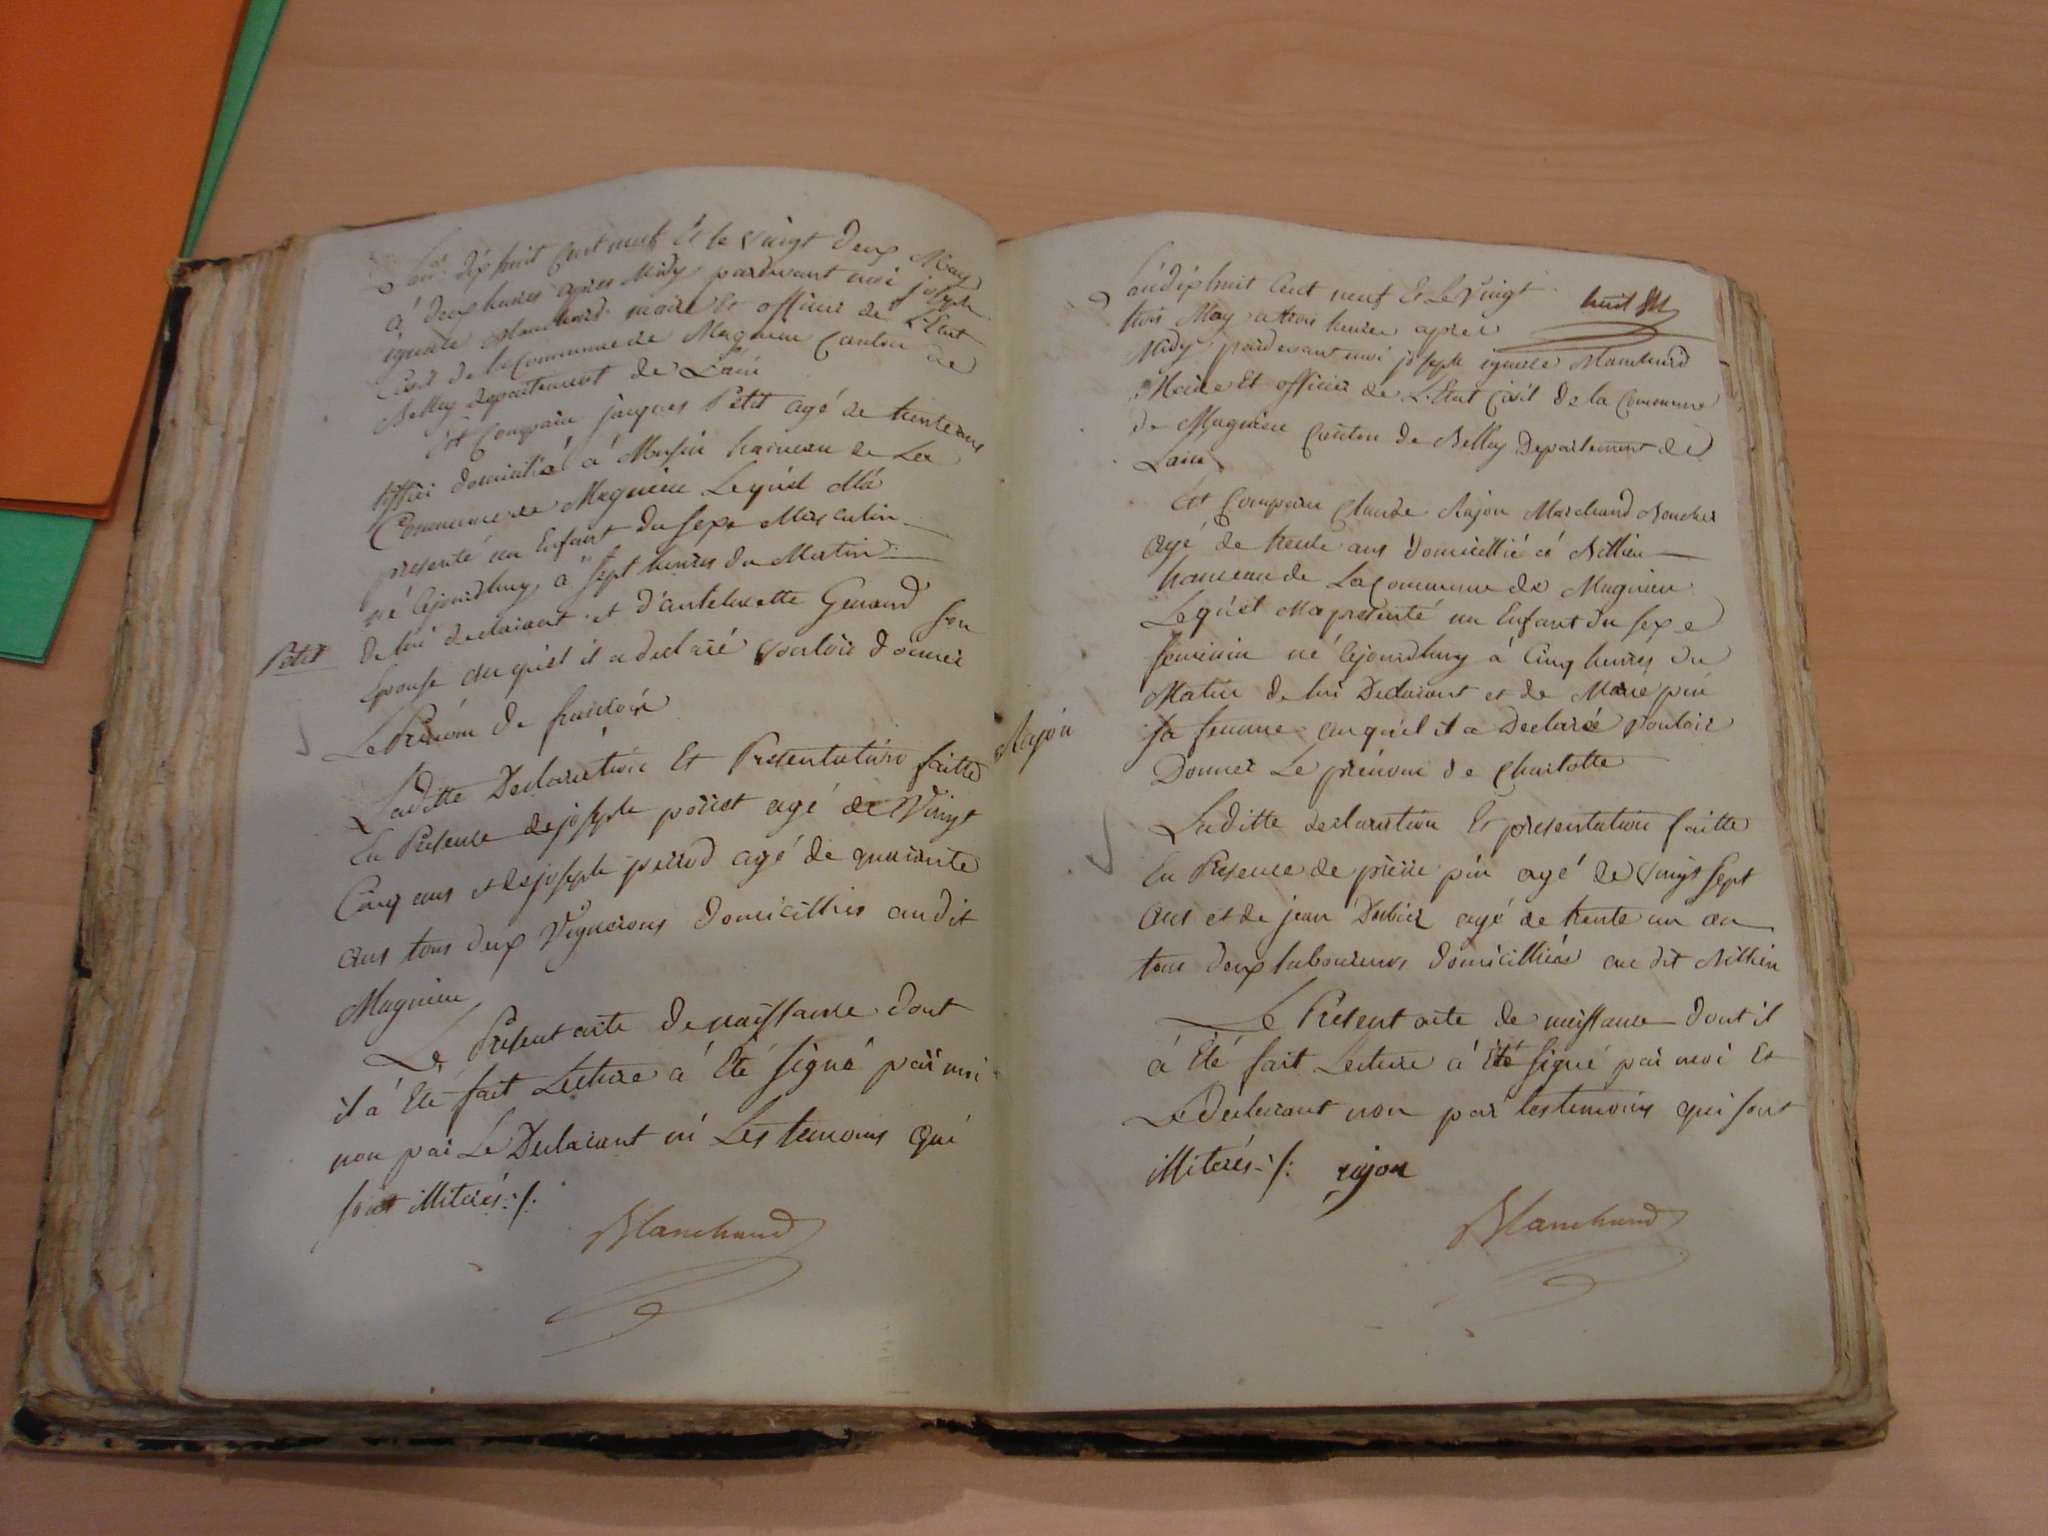 L'an dix huit cent neuf Et le vingt deux May
à deux heures apres Midy pardevant moi joseph
ignace Blanchard maire Et officier de L'Etat
Civil de la Commune de Magnieu Canton de
Belley departement de L'ain
Est Comparu jacques Petit agé de trente ans
domicilié á hameau de La
Commune de Magnieu Lequel M'a
presenté un Enfant du sexe Masculin
né cejourdhuy à sept heures du Matin
de lui declarant et d'antoinette Gerand son
Petit
Epouse auquel il a declaré vouloir donner
Le Prénom de francois
Laditte Declaration Et Presentation faitte
En Presence de joseph agé de Vingt
Cinq ans et de joseph perrod agé de quarante
ans tous deux Vignerons domicilliés audit
Magnieu
Le Present acte de naissance dont
il á Eté fait Lecture á Eté signé par moi
non par Le Declarant ni Les temoins qui
sont illiterés ./.
Blanchard
L'an dix huit Cent neuf Et Le Vingt
huit
trois May a trois heures apres
Midy pardevant moi joseph ignace Blanchard
Maire Et officier de L'Etat Civil de la Commune
de Magnieu Canton de Belley Departement de
Lain
Est Comparu Claude Rajon Marchand Boucher
agé de trente ans domicillié á Billieu
hameau de La Commune de Magnieu
Lequel Ma presenté un Enfant du sexe
feminin né cejourdhuy á Cinq heures du
Matin de lui Declarant et de Marie pin
Rajon
sa femme auquel il a Declaré vouloir
Donner Le prénom de Charlotte
Laditte declaration Et presentation faitte
En Presence de pierre pin agé de vingt sept
ans et de jean agé de trente un an
tous deux laboureurs domicilliés au dit Billieu
Le Present acte de naissance dont il
á Eté fait Lecture á Eté signé par moi Et
Le declarant non par les temoins qui sont
illiterés ./. rajon
Blanchard